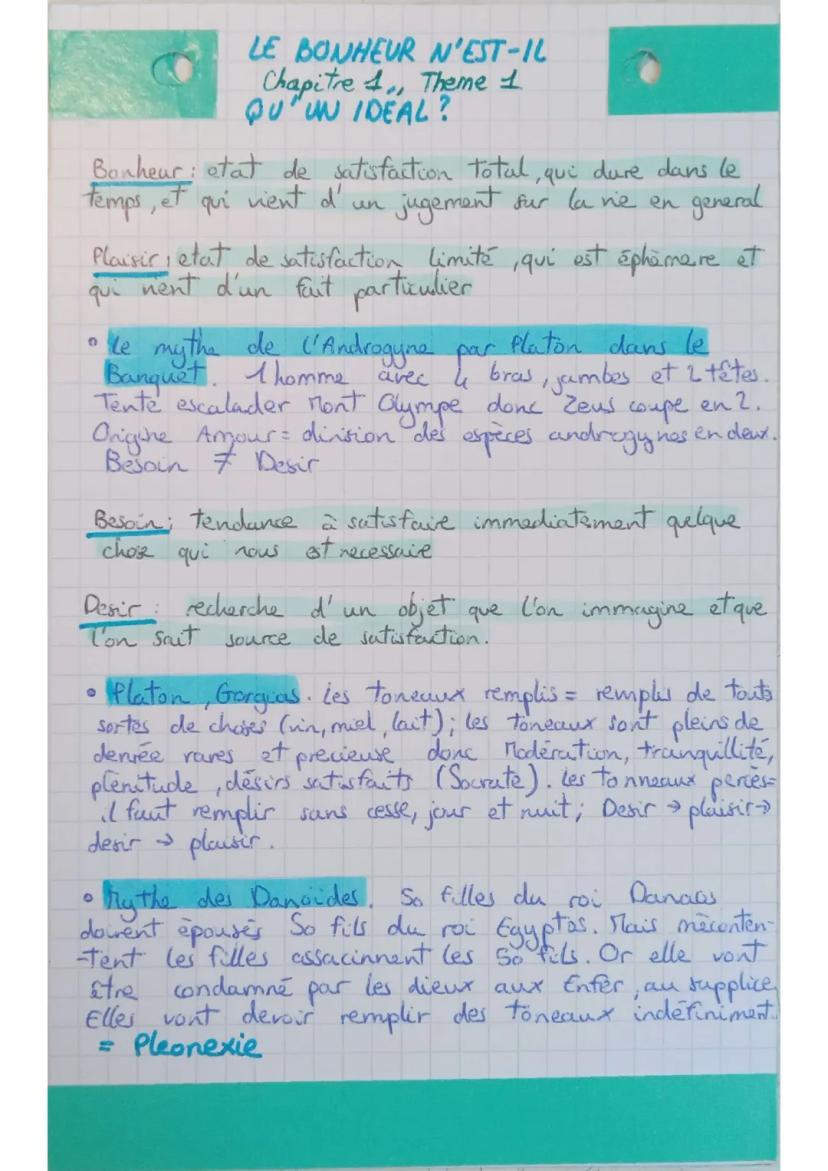 LE BONHEUR N'EST-IL
Chapitre 1,, Theme 1
QU'UN IDEAL ?
Bonheur : etat de satisfaction total, qui dure dans le
temps, et qui vient d'un jugement sur la vie en general
Plaisir : etat de satisfaction limité, qui est éphèmere et
qui vient d'un fait particulier
• Le mythe de l'Androgyne par Platon dans le
Banquet. 1 homme avec 4 bras, jambes et 2 têtes.
Tente escalader Mont Olympe donc Zeus coupe en 2.
Origine Amour = division des espèces androgynes en deux.
Besoin ≠ Desir
Besoin ; tendance à satisfaire immediatement quelque
chose qui nous est necessaire
Desir : recherche d'un objet que l'on immagine et que
l'on sait source de satisfaction.
• Platon, Gorgias. Les toneaux remplis = remplis de touts
sortes de choses (vin, miel, lait) ; les toneaux sont pleins de
denrée rares et precieuse donc Modération, tranquillité,
plenitude, désirs satisfaits (Socrate). Les tonneaux percés=
il faut remplir sans cesse, jour et nuit ; Desir → plaisir →
desir → plaisir.
• Mythe des Danoïdes. 50 filles du roi Danaos
doivent épousés 50 fils du roi Egyptos. Mais méconten-
-tent les filles assacinnent les 50 fils. Or elle vont
être condamné par les dieux aux Enfer, au supplice,
Elles vont devoir remplir des toneaux indéfiniment.
= Pleonexie